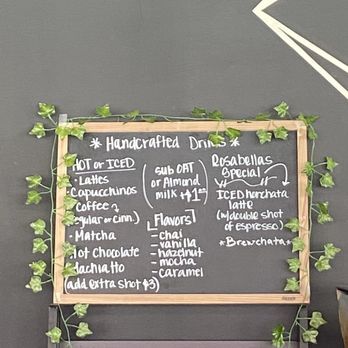 * Handcrafted Drinks *
HOT or ICED
• Lattes
• Capucchinos
Coffee
regular or cinn.)
• Matcha
Hot Chocolate
Machiatto
(add extra shot $3)
(sub OAT
or Almond
milk +$1.00)
Flavors
- chai
- vanilla
- hazelnut
- mocha
- caramel
Rosabellas
Special
ICED horchata
latte
w/double shot
of espresso
*Brewchata*